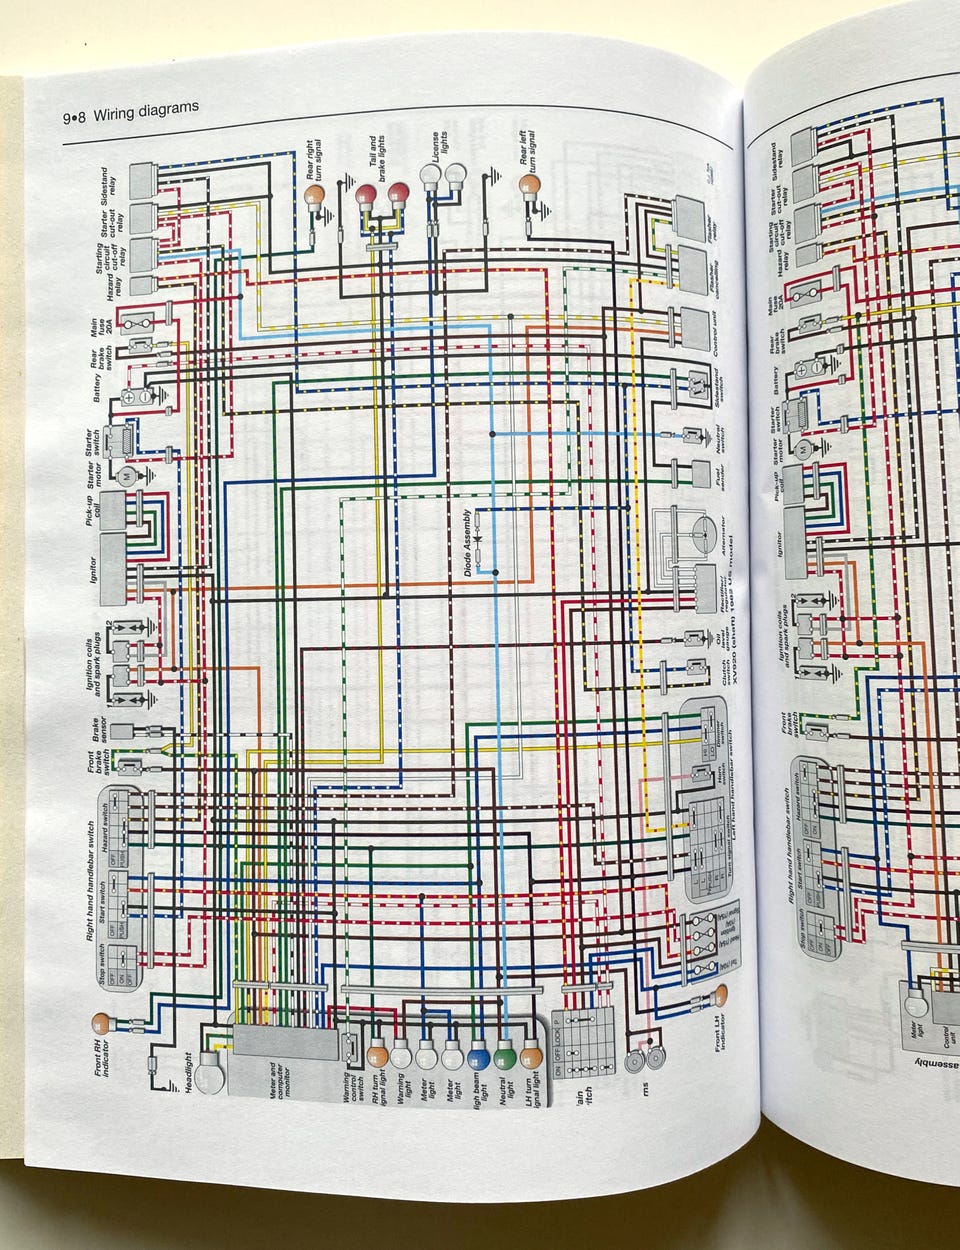 9•8 Wiring diagrams
Sidestand
relay
Starter
cut-out
relay
Starting
circuit
cut-off
relay
Hazard
relay
Main
fuse
20A
Rear
brake
switch
Battery
Starter
switch
Starter
motor
M
Pick-up
coil
Ignitor
Ignition coils
and spark plugs
2
1
Brake
sensor
Front
brake
switch
Right hand handlebar switch
Hazard switch
OFF
PUSH
Start switch
OFF
PUSH
Stop switch
OFF
ON
OFF
Front RH
indicator
Rear right
turn signal
Tail and
brake lights
License
lights
Rear left
turn signal
Diode Assembly
Headlight
Meter and
computer
monitor
Warning
control
switch
RH turn
signal light
Warning
light
Meter
light
Meter
light
igh beam
light
Neutral
light
LH turn
ignal light
Flasher
relay
Flasher
cancelling
Control unit
Sidestand
switch
Neutral
switch
Fuel
sender
Alternator
Rectifier
regulator
Oil
level
gauge
Clutch
switch
XV920 (shaft) 1982 US model
Dimmer
switch
HI
LO
Horn
switch
Turn signal switch
Left hand handlebar switch
Signal (15A)
Ignition
(10A)
Head (15A)
Tail (10A)
Front LH
indicator
ON OFF LOCK P
ain
itch
ms
Sidestand
relay
Starter
cut-out
relay
Starting
circuit
cut-off
relay
Hazard
relay
Main
fuse
20A
Rear
brake
switch
Battery
Starter
switch
Starter
motor
M
Pick-up
coil
Ignitor
Ignition coils
and spark plugs
2
1
Front
brake
switch
Right hand handlebar switch
Hazard switch
OFF
ON
Start switch
OFF
PUSH
Stop switch
OFF
ON
OFF
Meter
light
Control
unit
assembly